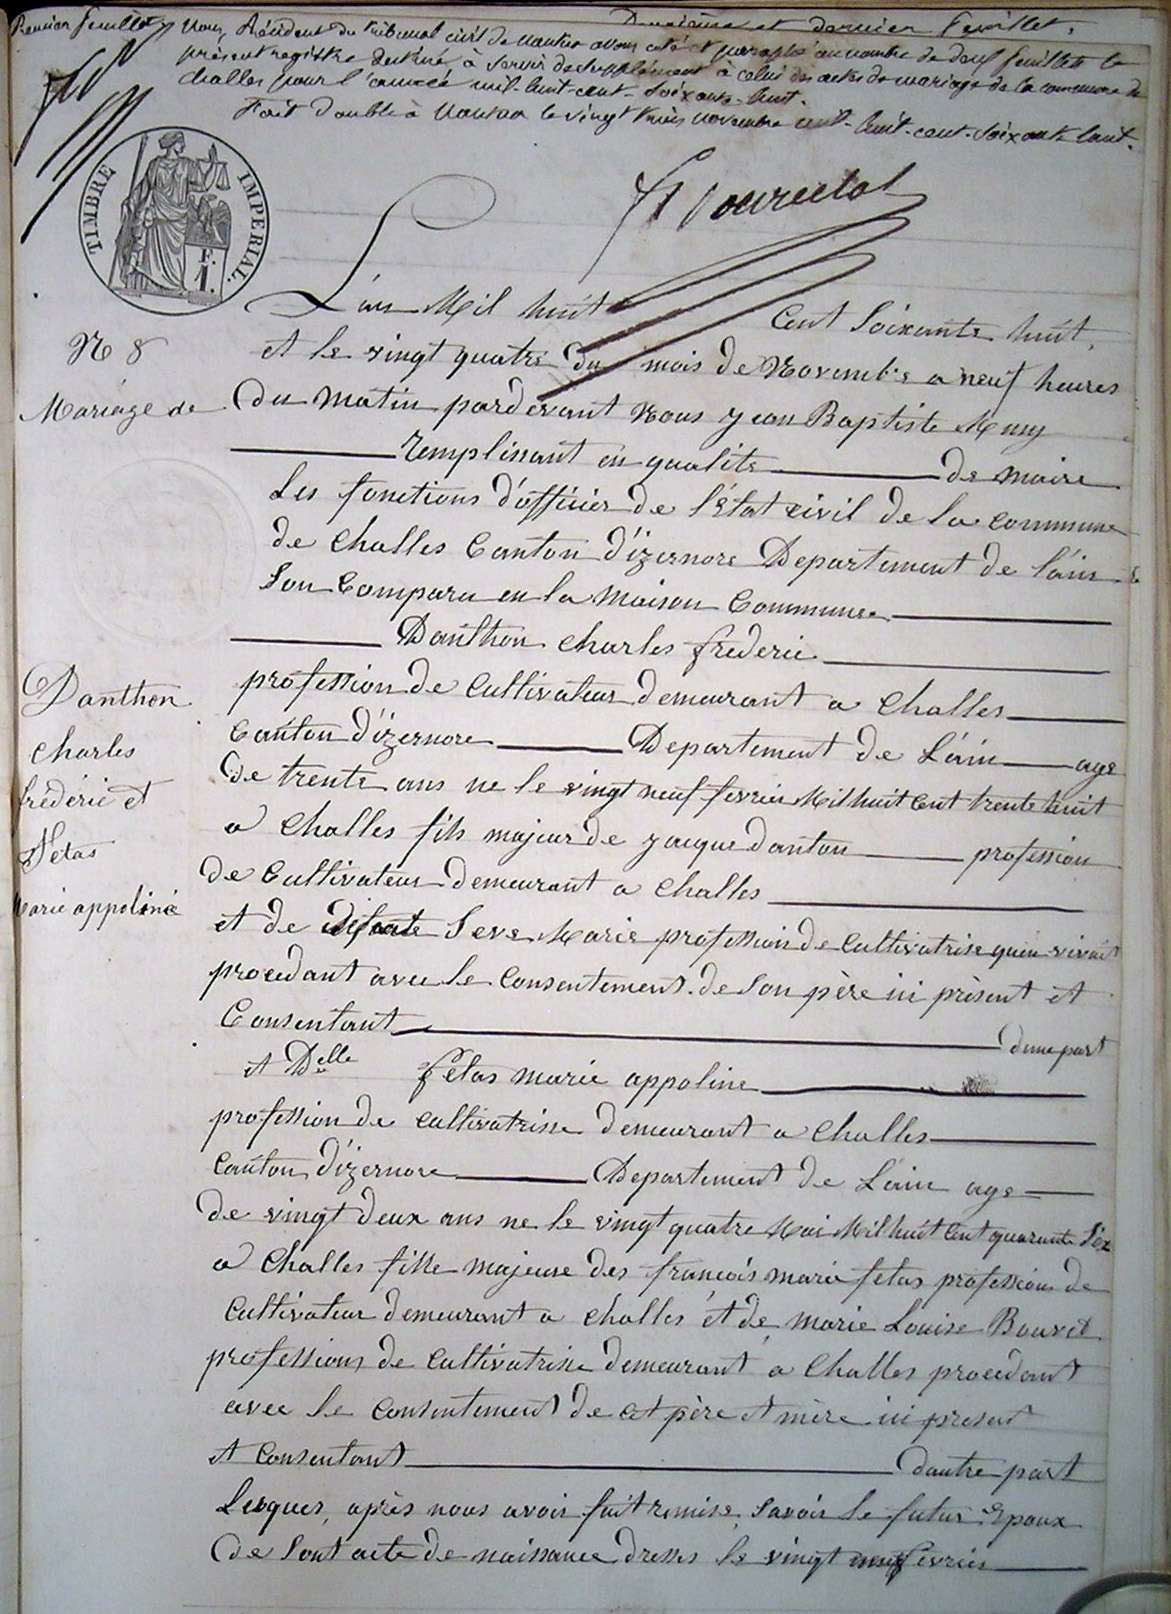 Premier feuillet
Deuxième et dernier feuillet.
Nous, Président du tribunal civil de Nantua avons coté et paraphé au nombre de deux feuillets le
présent registre destiné à servir de supplément à celui des actes de mariage de la commune de
Challes pour l'année mil-huit-cent-soixante-huit.
Fait double à Nantua le vingt trois novembre mil-huit-cent-soixante huit.
TIMBRE IMPERIAL.
F.
1.
L'an Mil huit Cent Soixante huit,
et le vingt quatre du mois de Novembre a neuf heures
du matin pardevant Nous jean Baptiste
remplissant en qualite de maire
Les fonctions d'officier de l'Etat civil de la commune
de challes Canton d'izernore Departement de l'ain
Son Comparu en la Maison Commune
Danthon charles frederic
profession de Cultivateur demeurant a challes
Canton d'izernore Departement de L'ain age
de trente ans ne le vingt neuf fevrier Mil huit Cent trente huit
a Challes fils majeur de jacque danton profession
de Cultivateur demeurant a challes
et de defunte Seve Marie profession de cultivatrise quen vivait
procedant avec le consentement de Son père ici présent et
Consentant dune part
et Delle fetas marie appoline
profession de cultivatrisse demeurant a challes
Canton d'izernore Departement de L'ain age
de vingt deux ans ne le vingt quatre Mai Mil huit Cent quarante Six
a Challes fille majeure des francois marie fetas profession de
Cultivateur demeurant a challes et de marie Louise Bouvet
professions de cultivatrisse demeurant a Challes procedant
avec le consentement de cet père et mère ici present
et Consentant dautre part
Lesques, après nous avois fait remise, Savois le futur Epoux
de Sont acte de naissance dresses le vingt neuf fevrier
N 8
Mariage de
Danthon
charles
fréderic et
Fetas
Marie appoline